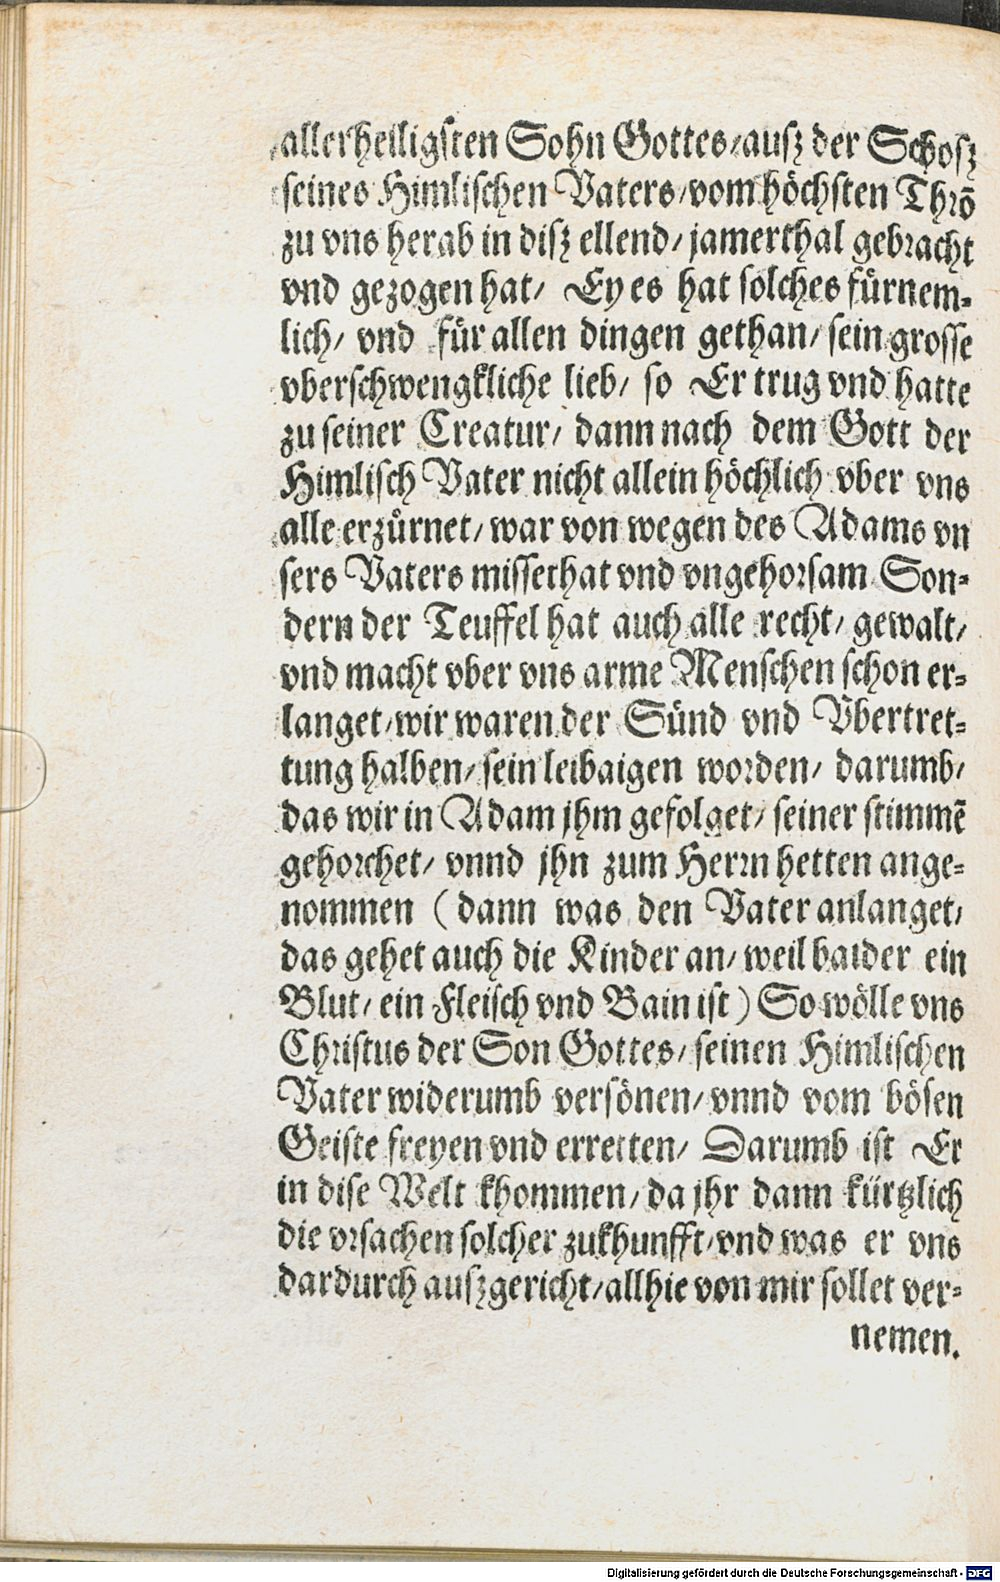 allerheiligsten Sohn Gottes/ausz der Schosz
seines Himlischen Vaters/vom höchsten Thrõ
zu vns herab in disz ellend/ jamerthal gebracht
vnd gezogen hat/ Ey es hat solches fürnem-
lich/ vnd für allen dingen gethan/ sein grosse
vberschwengkliche lieb/ so Er trug vnd hatte
zu seiner Creatur/ dann nach dem Gott der
Himlisch Vater nicht allein höchlich vber vns
alle erzürnet/ war von wegen des Adams vn
sers Vaters missethat vnd vngehorsam Son-
dern der Teuffel hat auch alle recht/ gewalt/
vnd macht vber vns arme Menschen schon er-
langet/wir waren der Sünd vnd Vbertret-
tung halben/ sein leibaigen worden/ darumb/
das wir in Adam jhm gefolget/ seiner stimmẽ
gehorchet/ vnnd jhn zum Herrn hetten ange-
nommen (dann was den Vater anlanget/
das gehet auch die Kinder an/ weil baider ein
Blut/ ein Fleisch vnd Bain ist) So wölle vns
Christus der Son Gottes/ seinen Himlischen
Vater widerumb versönen/ vnnd vom bösen
Geiste freyen vnd erretten/ Darumb ist Er
in dise Welt khommen/ da jhr dann kürtzlich
die vrsachen solcher zukhunfft/vnd was er vns
dardurch auszgericht/allhie von mir sollet ver-
nemen.
Digitalisierung gefördert durch die Deutsche Forschungsgemeinschaft - DFG